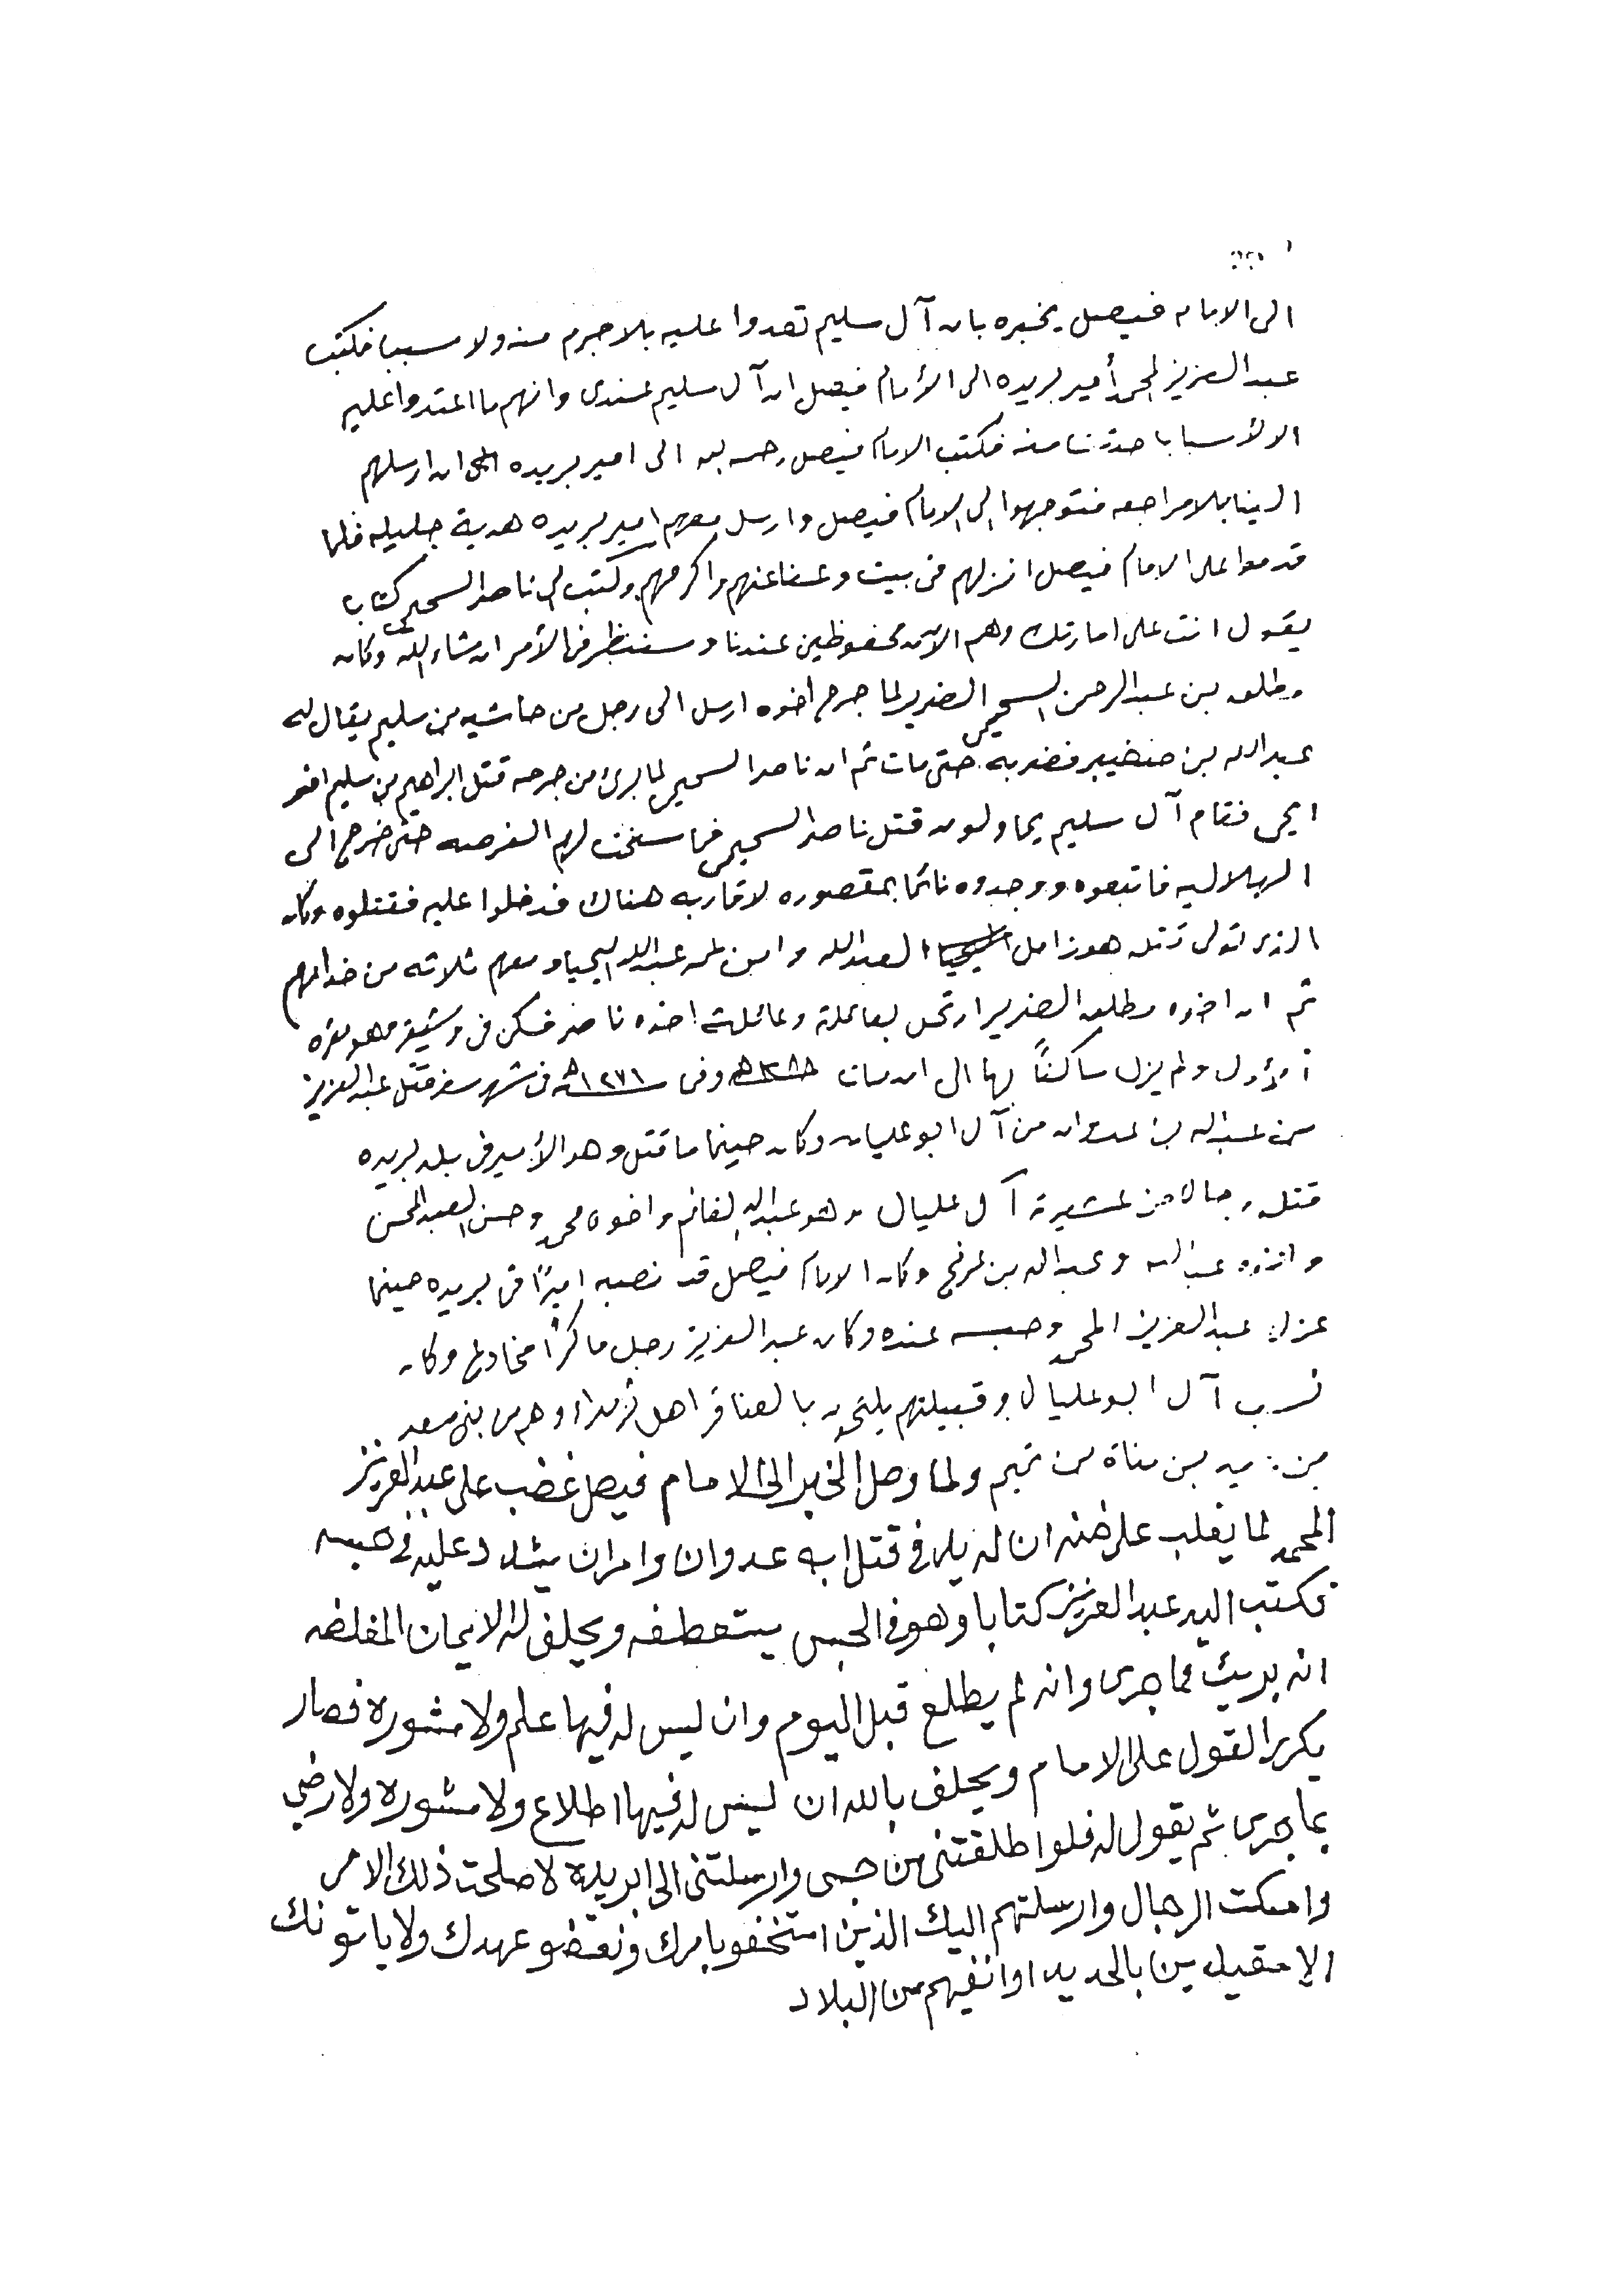 الى الامام فيصل يخبره بان آل سليم تعدوا عليه بلا جرم منه ولا سببا فكتب
عبد العزيز المحمد أمير بريده الى الأمام فيصل ان آل سليم عندى وانهم ما اعتدوا عليه
الا لأسبابا حدثت منه فكتب الامام فيصل رحمه الله الى امير بريده ان ارسلهم
الينا بلا مراجعه فتوجهوا الى الامام فيصل وارسل معهم امير بريده هدية جليله فلما
قدموا على الامام فيصل انزلهم فى بيت وعفا عنهم واكرمهم وكتب الى ناصر السحيمى كتابا
يقول انت على امارتك وهم الآن محفوظين عندنا وسننظر فى الأمر ان شاء الله وكان
مطلق بن عبد الرحمن السحيمى الضرير لما جرح أخوه ارسل الى رجل من حاشيه بن سليم يقال له
عبد الله بن فضربه حتى مات ثم ان ناصر السحيمى لما برئ من جرحه قتل ابراهيم بن سليم اخو
يحى فقام آل سليم يحاولون قتل ناصر السحيمى فما سنحت لهم الفرصه حتى خرج الى
الهلاليه فاتبعوه ووجدوه نائما بمقصوره لاقاربه هناك فدخلوا عليه فقتلوه وكان
الذى تولى قتله هو زامل العبد الله وابن عمه عبد الله اليحيا ومعهم ثلاثه من خدامهم
ثم ان اخوه مطلق الضرير ارتحل بعائلته وعائلة اخوه ناصر فسكن فى وشيقر وهو مقره
الأول ولم يزل ساكنًا بها الى ان مات وفى ١٢٧١هـ فى شهر سفر قتل عبد العزيز
بن عبد الله بن عدوان من آل ابو عليان وكان حينما قتل وهو الأمير فى بلد بريده
قتله رجالا من عشيرة آل عليان وهو عبد الله الغانم واخوه محمد وحسن العبد المحسن
واخوه عبد الله وعبد الله بن عرفج وكان الامام فيصل قد نصبه اميرًا فى بريده حينما
عزل عبد العزيز المحمد وحبسه عنده وكان عبد العزيز رجل ماكرًا مخادعا وكان
نسب آل ابو عليان وقبيلتهم يلتحق بالعناقر اهل ثرمداء وهم من بنى سعد
بن زيد بن مناة من تميم ولما وصل الخبر الى الامام فيصل غضب على عبد العزيز
المحمد لما يغلب على ضنه ان له يد فى قتل ابه عدوان وامر ان يشدد عليه فى حبسه
فكتب اليه عبد العزيز كتابا وهو فى الحبس يستعطفه ويحلف له الايمان المغلضه
انه بريئ مما جرى وانه لم يطلع قبل اليوم وان ليس له فيها علم ولا مشوره فصار
يكرر القول على الامام ويحلف بالله ان ليس له فيها اطلاع ولا مشوره ولا رضى
بما جرى ثم يقول له فلو اطلقتنى من حبسى وارسلتنى الى ابريدة لاصلحت ذلك الامر
وامسكت الرجال وارسلتهم اليك الذين استخفو بامرك ونقضو عهدك ولا ياتونك
الا مقيدين بالحديد او انفيهم من البلاد